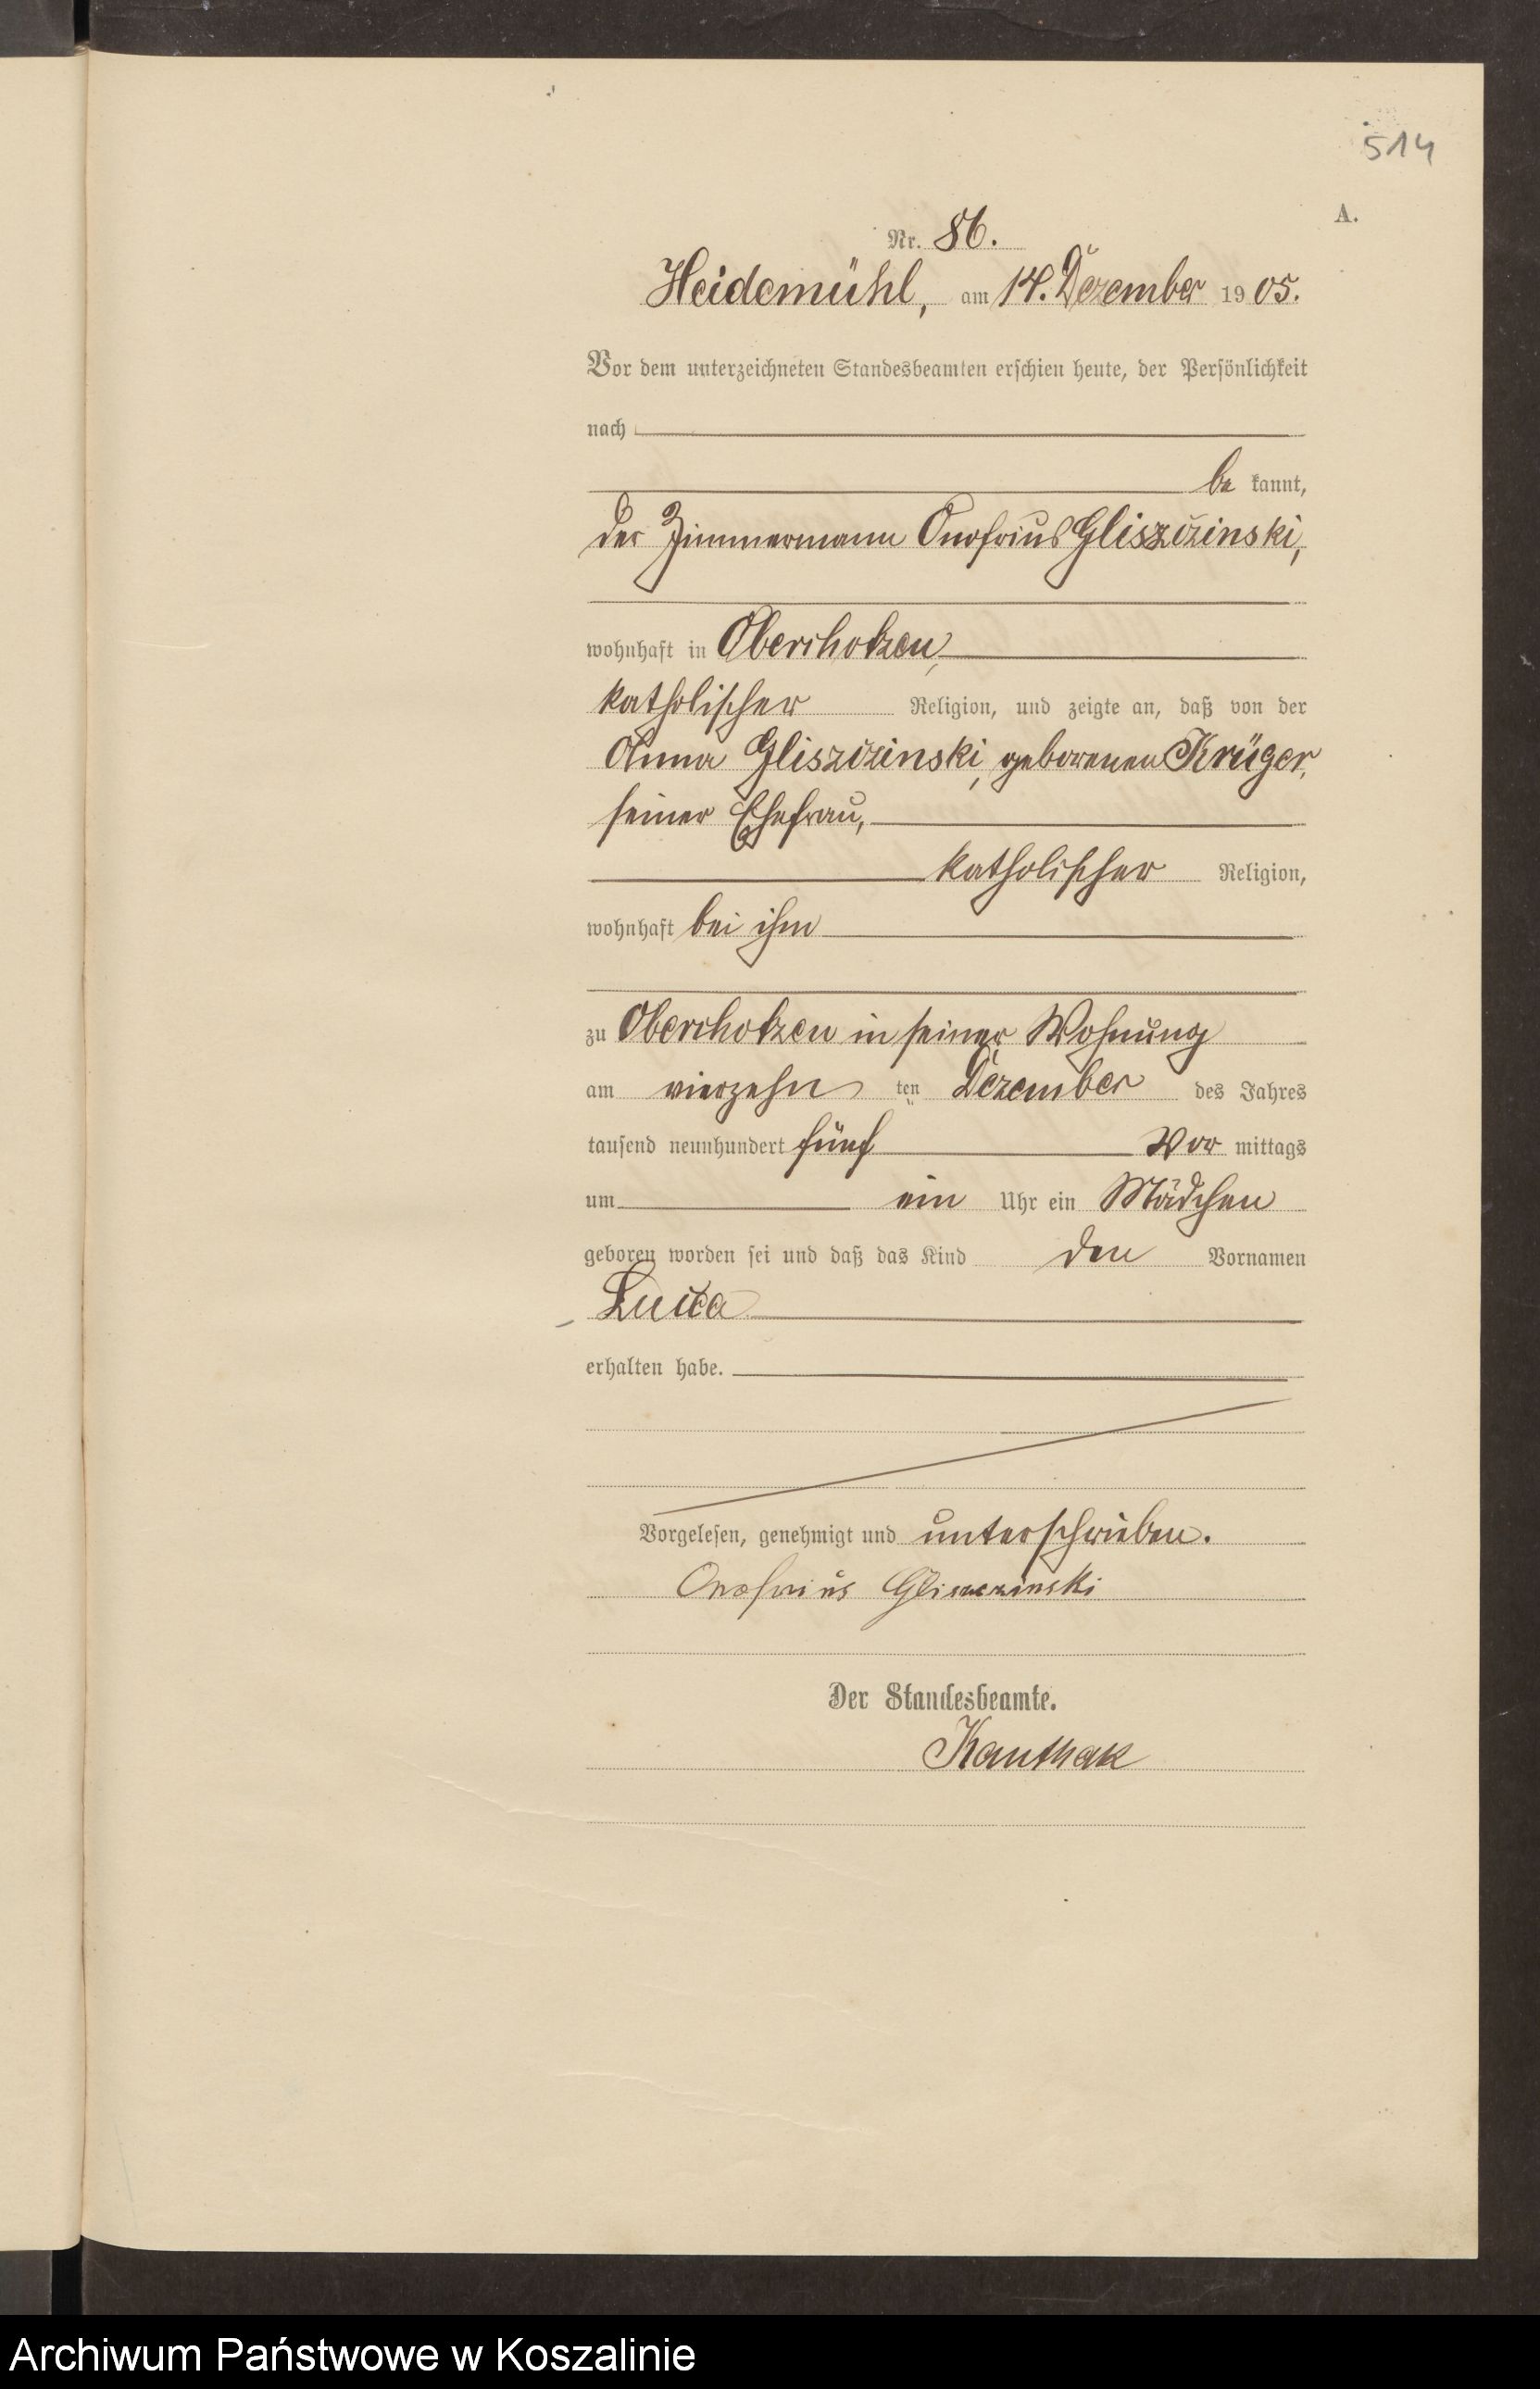 514
A.
Nr. 86.
Heidemühl, am 14. Dezember 1905.
Vor dem unterzeichneten Standesbeamten erschien heute, der Persönlichkeit
nach
be kannt,
der Zimmermann Onofrius Gliszczinski,
wohnhaft in
katholischer Religion, und zeigte an, daß von der
Anna Gliszczinski, geborenen Krüger,
seiner Ehefrau,
katholischer Religion,
wohnhaft bei ihm
zu in seiner Wohnung
am vierzehn ten Dezember des Jahres
tausend neunhundert fünf Vor mittags
um ein Uhr ein Mädchen
geboren worden sei und daß das Kind den Vornamen
erhalten habe.
Vorgelesen, genehmigt und unterschrieben.
Onofrius Gliszczinski
Der Standesbeamte.
Kauthak
Archiwum Państwowe w Koszalinie